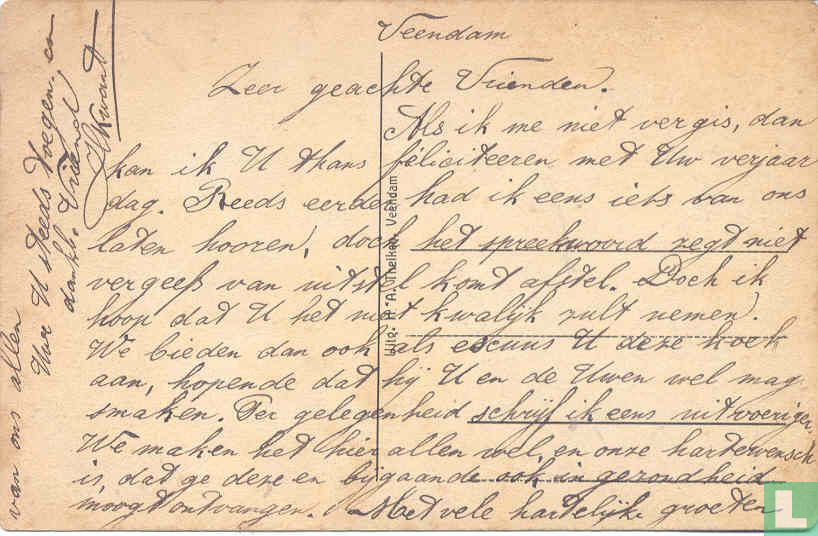 Veendam
Zeer geachte Vrienden.
Als ik me niet vergis, dan
kan ik U thans féliciteeren met Uw verjaar
dag. Reeds eerder had ik eens iets van ons
laten hooren, doch het spreekwoord zegt niet
vergeefs van uitstel komt afstel. Doch ik
hoop dat U het niet kwalijk zult nemen.
We bieden dan ook als excuus U deze koek
aan, hopende dat hij U en de Uwen wel mag
smaken. Ter gelegenheid schrijf ik eens uitvoeriger.
We maken het hier allen wel, en onze hartewensch
is, dat ge deze en bijgaande ook in gezondheid
moogt ontvangen. Met vele hartelijke groeten
van ons allen
Uwe U steeds toegen. en
dankb. Vriend,
H Kwant
Uitg. A. Veendam
Catawiki